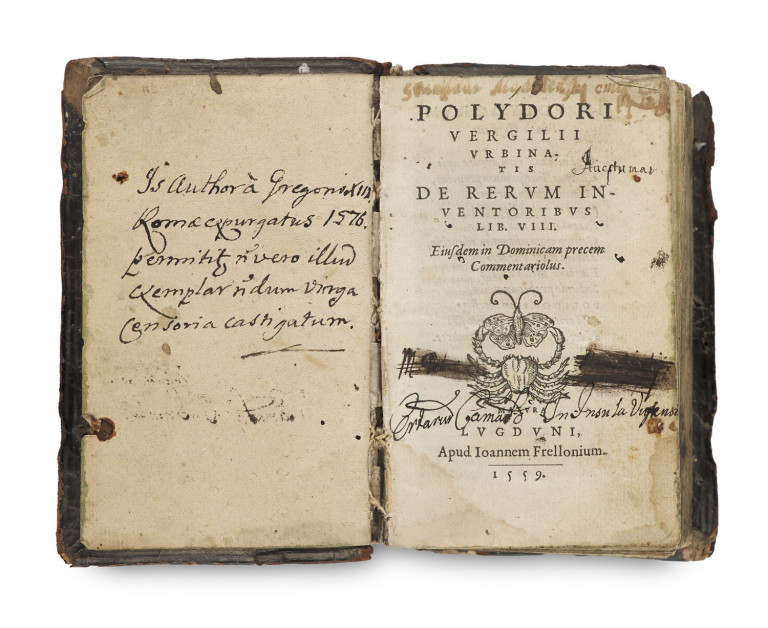 Is Author à Gregorio XIII
Romæ expurgatus 1576.
permititʒ ñ vero illud
exemplar ñdum virga
censoria castigatum.
POLYDORI
VERGILII
VRBINA-
TIS
DE RERVM IN-
VENTORIBVS
LIB. VIII.
Eiusdem in Dominicam precem
Commentariolus.
In Insula
LVGDVNI,
Apud Ioannem Frellonium.
1559.